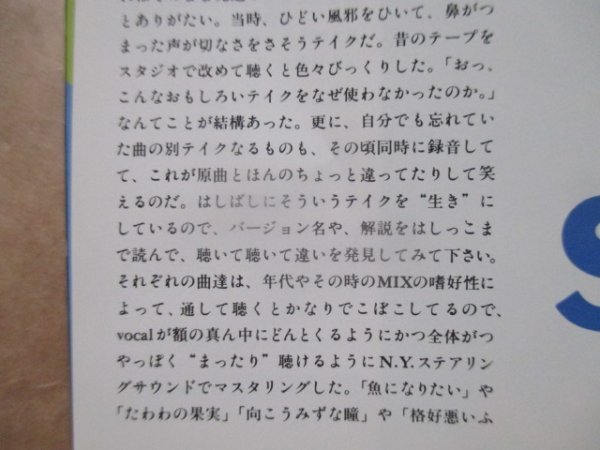 とありがたい。当時、ひどい風邪をひいて、鼻がつ
まった声が切なさをさそうテイクだ。昔のテープを
スタジオで改めて聴くと色々びっくりした。「おっ、
こんなおもしろいテイクをなぜ使わなかったのか。」
なんてことが結構あった。更に、自分でも忘れてい
た曲の別テイクなるものも、その頃同時に録音して
て、これが原曲とほんのちょっと違ってたりして笑
えるのだ。はしばしにそういうテイクを“生き”に
しているので、バージョン名や、解説をはしっこま
で読んで、聴いて聴いて違いを発見してみて下さい。
それぞれの曲達は、年代やその時のMIXの嗜好性に
よって、通して聴くとかなりでこぼこしてるので、
vocalが額の真ん中にどんとくるようにかつ全体がつ
やっぽく“まったり”聴けるようにN.Y.ステアリン
グサウンドでマスタリングした。「魚になりたい」や
「たわわの果実」「向こうみずな瞳」や「格好悪いふ